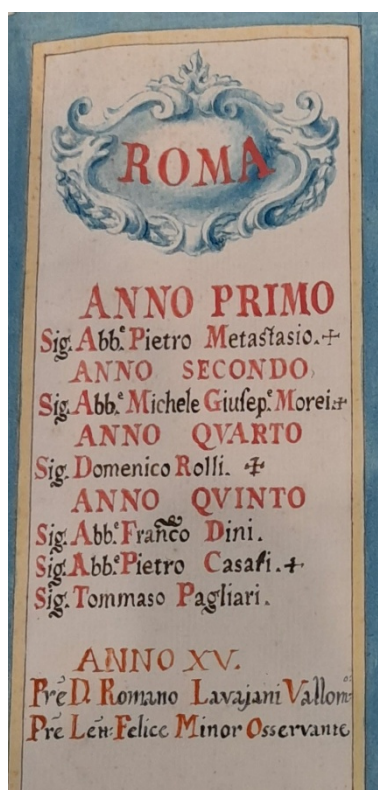 ROMA
ANNO PRIMO
Sig. Abb.e Pietro Metastasio. +
ANNO SECONDO
Sig. Abb.e Michele Giusep.e Morei +
ANNO QVARTO
Sig. Domenico Rolli. +
ANNO QVINTO
Sig. Abb.e Franco Dini.
Sig. Abb.e Pietro Casasi. +
Sig. Tommaso Pagliari.
ANNO XV.
Prē D. Romano Lavajani Vallom.
Prē Felice Minor Osservante